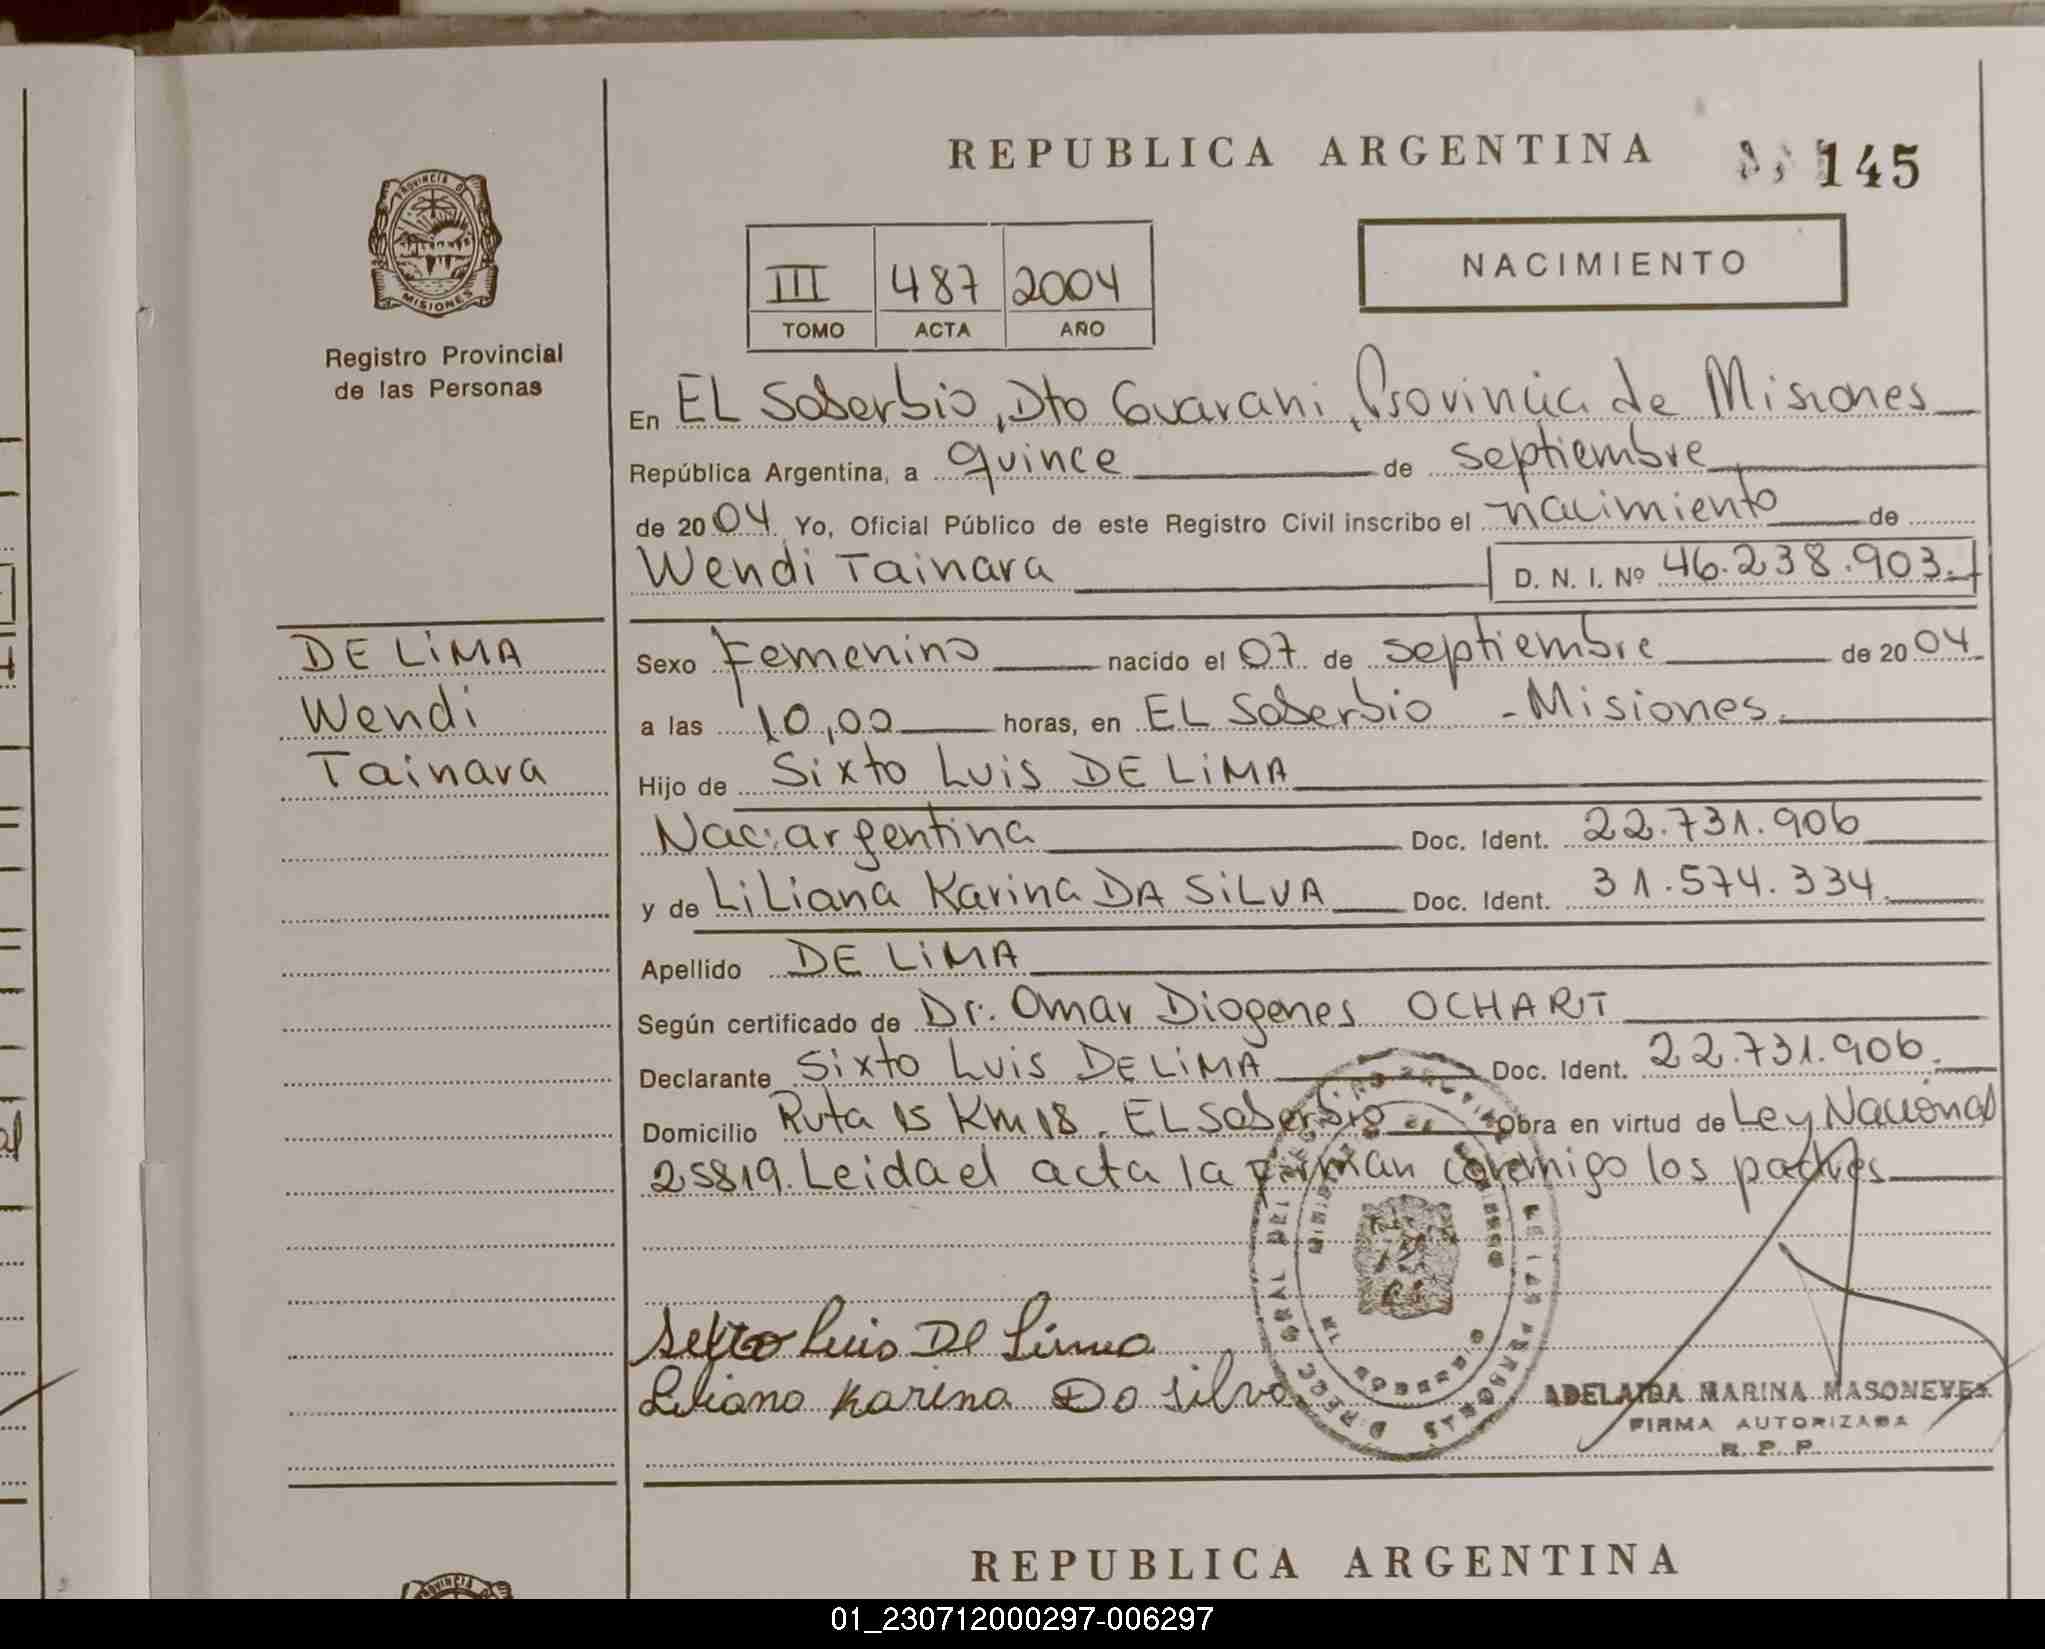 REPUBLICA ARGENTINA
145
PROVINCIA DE
MISIONES
Registro Provincial
de las Personas
III 487 2004
TOMO ACTA AÑO
NACIMIENTO
En EL Soberbio, Dto Guarani, Provincia de Misiones
República Argentina, a quince de septiembre
de 2004 Yo, Oficial Público de este Registro Civil inscribo el nacimiento de
Wendi Tainara D. N. I. Nº 46.238.903.
DE LiMA
Wendi
Tainara
Sexo Femenino nacido el 07 de septiembre de 2004
a las 10,00 horas, en EL Soberbio - Misiones.
Hijo de Sixto Luis DE LiMA
Nac: argentina Doc. Ident. 22.731.906
y de LiLiana Karina DA SiLVA Doc. Ident. 31.574.334
Apellido DE LiMA
Según certificado de Dr. Omar Diogenes OCHARIT
Declarante Sixto Luis DE LiMA Doc. Ident. 22.731.906.
Domicilio Ruta 15 Km 18. EL Soberbio Obra en virtud de Ley Nacional
25819. Leida el acta la firman conmigo los padres
Luis De Lima
Liliana Karina Da Silva
ADELAIDA MARINA MASONEVES
FIRMA AUTORIZADA
R. P. P.
REPUBLICA ARGENTINA
PROVINCIA DE
01_230712000297-006297